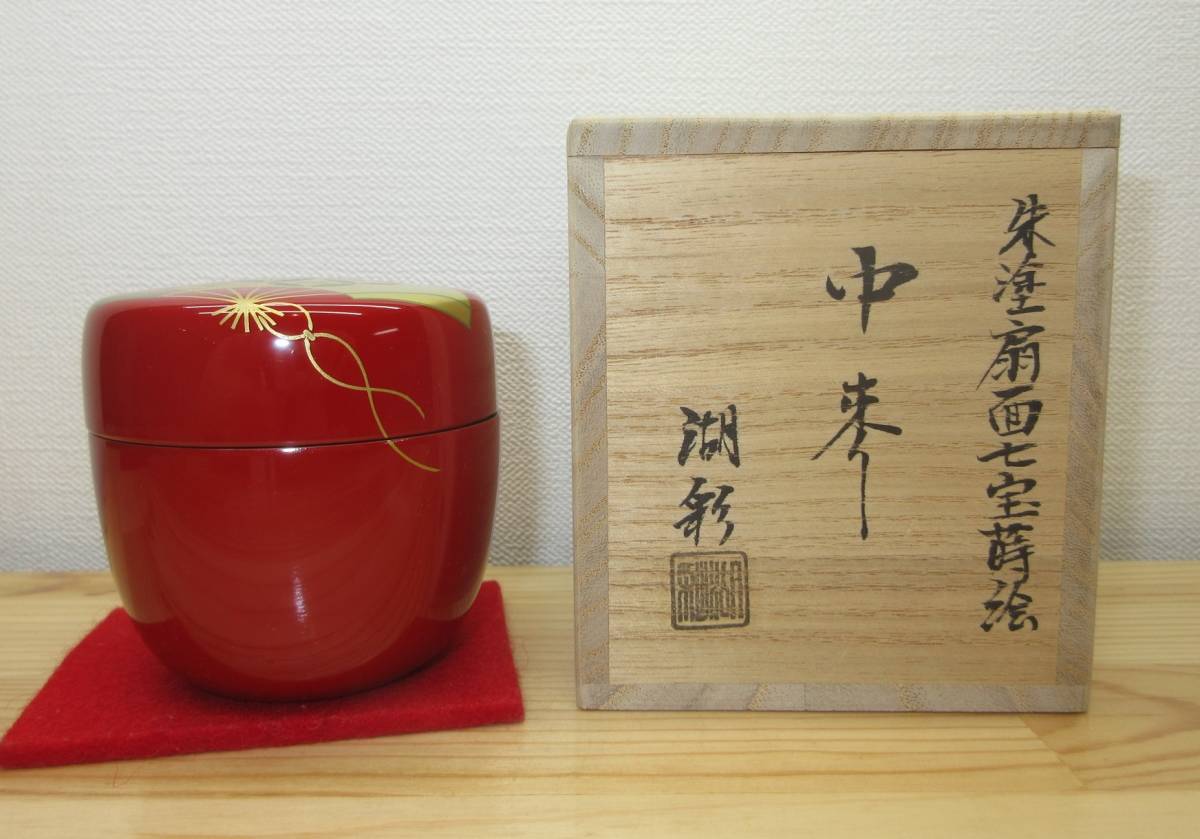 朱塗扇面七宝蒔絵
中棗
湖彩